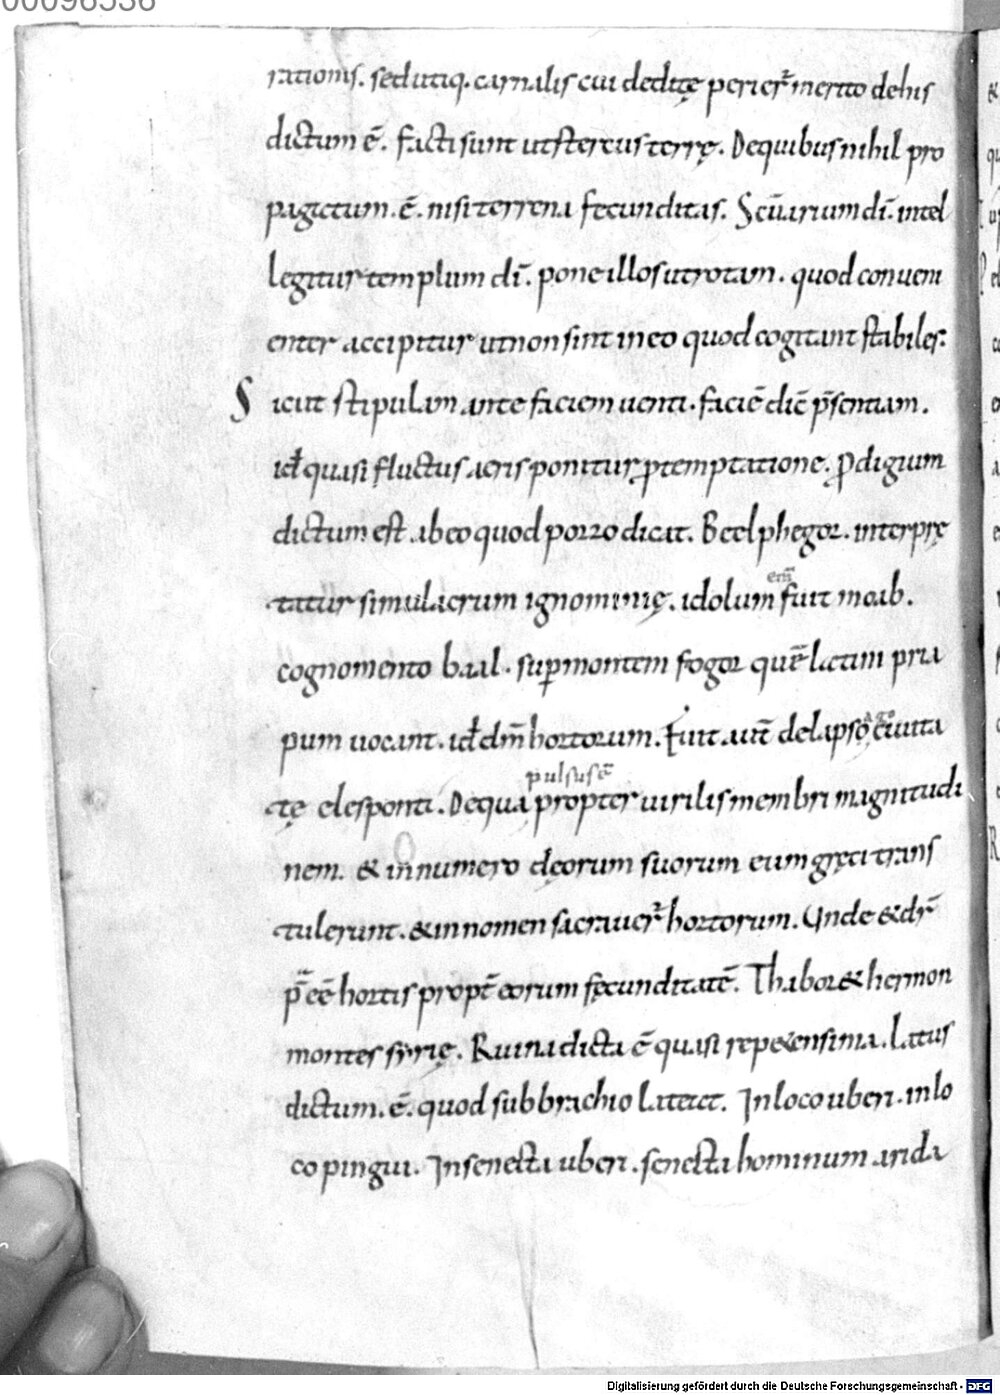 00096536
rationis. sed utiq. carnalis cui deditę perier̄ merito dehis
dictum ē. facti sunt ut stercus terrę. De quibus nihil pro
pagatum. ē. nisi terrena fecunditas. Scūarium dī. intel
legitur templum dī. pone illos ut rotam. quod conueni
enter accipitur ut non sint in eo quod cogitant stabiles:
Sicut stipulam ante faciem uenti. faciē dic̄ p̄sentiam.
id̄ quasi fluctus aeris ponitur ꝑ temptatione. Ꝓdigium
dictum est ab eo quod porro dicat. Beelphegor. interprę
tatur simulacrum ignominię. idolum fuit moab.
enī
cognomento baal. suꝑ montem fogor quē latini pria
pum uocant. id̄ dm̄ hortorum. Fuit aut̄ de lapso ciuita
tę elesponti. De qua propter uirilis membri magnitudi
pulsus ē
nem. & in numero dęorum suorum eum gręci trans
tulerunt. & in nomen sacrauer̄ hortorum. Unde & dr̄
p̄eē hortis propt̄ eorum fęcunditatē. Thabor & hermon
montes syrię. Ruina dicta ē quasi repetens ima. Latus
dictum. ē. quod sub brachio lateat. In loco uberi. in lo
co pingui. In senecta uberi. senecta hominum arida
Digitalisierung gefördert durch die Deutsche Forschungsgemeinschaft - DFG